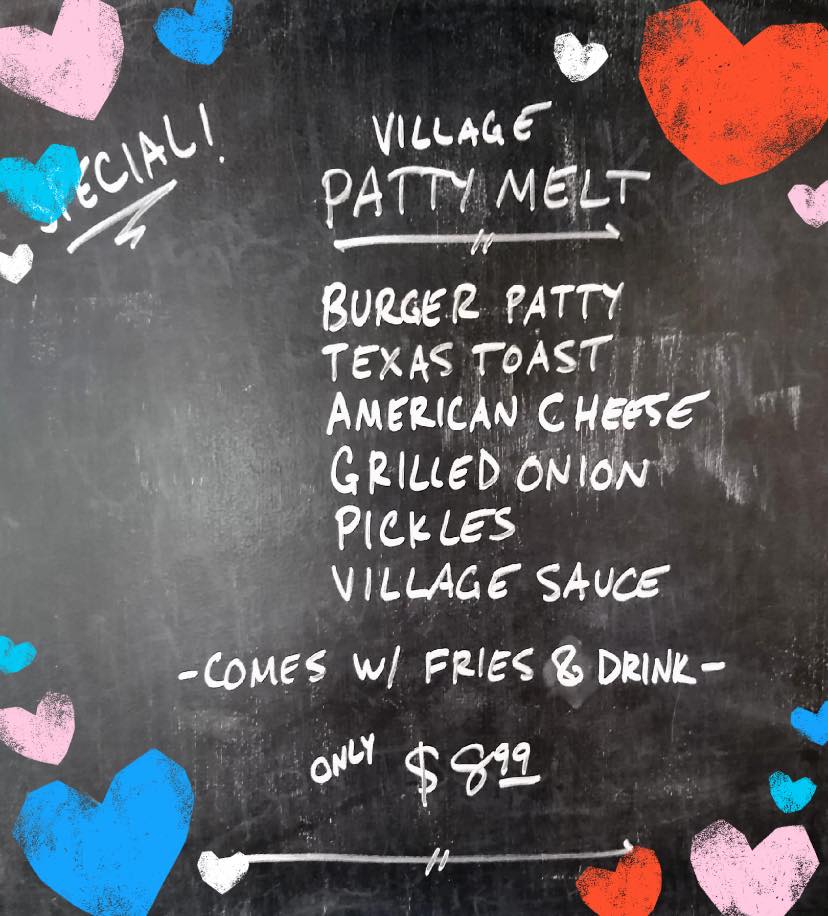 SPECIAL!
VILLAGE
PATTY MELT
BURGER PATTY
TEXAS TOAST
AMERICAN CHEESE
GRILLED ONION
PICKLES
VILLAGE SAUCE
-COMES W/ FRIES & DRINK-
ONLY $8.99